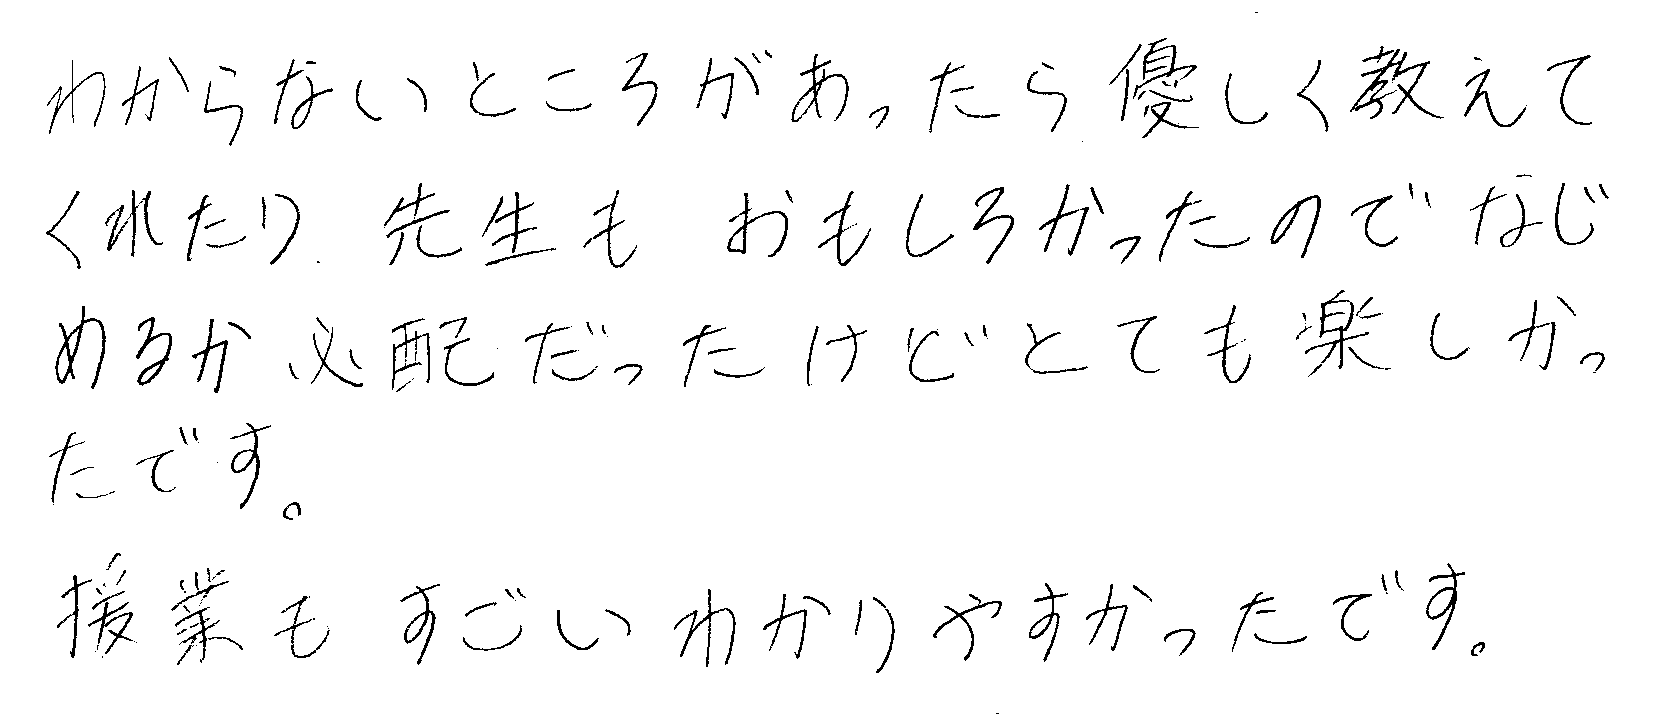 わからないところがあったら優しく教えて
くれたり 先生も おもしろかったので なじ
めるか 必配だったけどとても楽しかっ
たです。
援業も すごいわかりやすかったです。